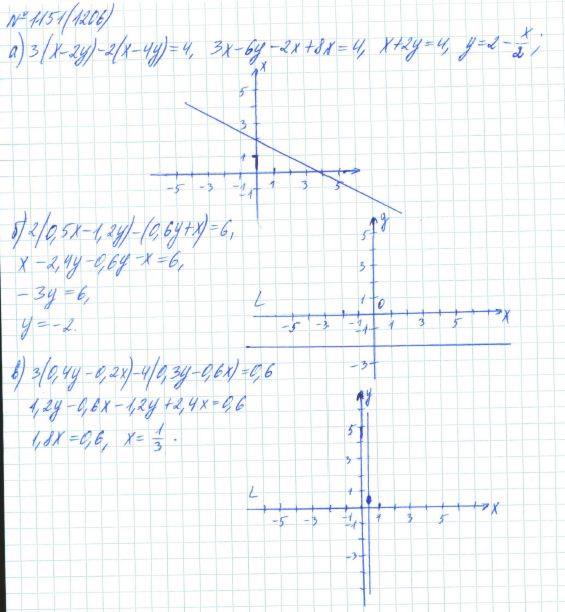 № 1151(1206)
а) 3(x-2y)-2(x-4y)=4, 3x-6y-2x+8x=4, x+2y=4, y=2-x/2;
x
5
3
1
-5 -3 -1 1 3 5
-1
б) 2(0,5x-1,2y)-(0,6y+x)=6,
x-2,4y-0,6y-x=6,
-3y=6,
y=-2.
y
5
3
1
0
L
-5 -3 -1 1 3 5 x
-1
-3
в) 3(0,4y-0,2x)-4(0,3y-0,6x)=0,6
1,2y-0,6x-1,2y+2,4x=0,6
1,8x=0,6, x=1/3.
y
5
3
1
L
-5 -3 -1 1 3 5 x
-1
-3